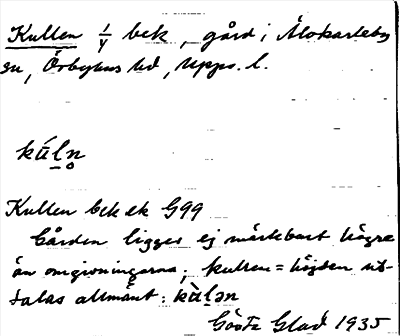 Kullen 1/4 bck, gård i Älvkarleby
sn, Örbyhus hd, Upps. l.
kúl̠n̥
Kullen bck ek G99
Gården ligger ej märkbart högre
än omgivningarna; kullen = höjden ut-
talas allmänt: kùl̠ən
Gösta Glad 1935